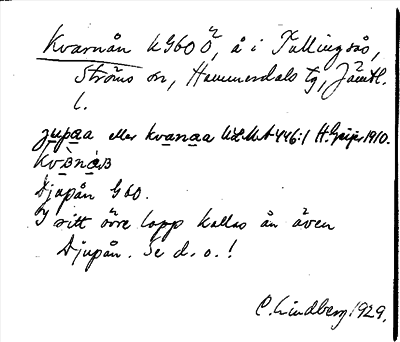 Kvarnån G60 Ö, å i Tullingsås,
Ströms sn, Hammerdals tg, Jämtl.
l.
jupaa eller kvanaa ULMA 446:1 H. Geijer 1910.
Djupån G60.
I sitt övre lopp kallas ån även
Djupån. Se d. o.!
C. Lindberg 1929.